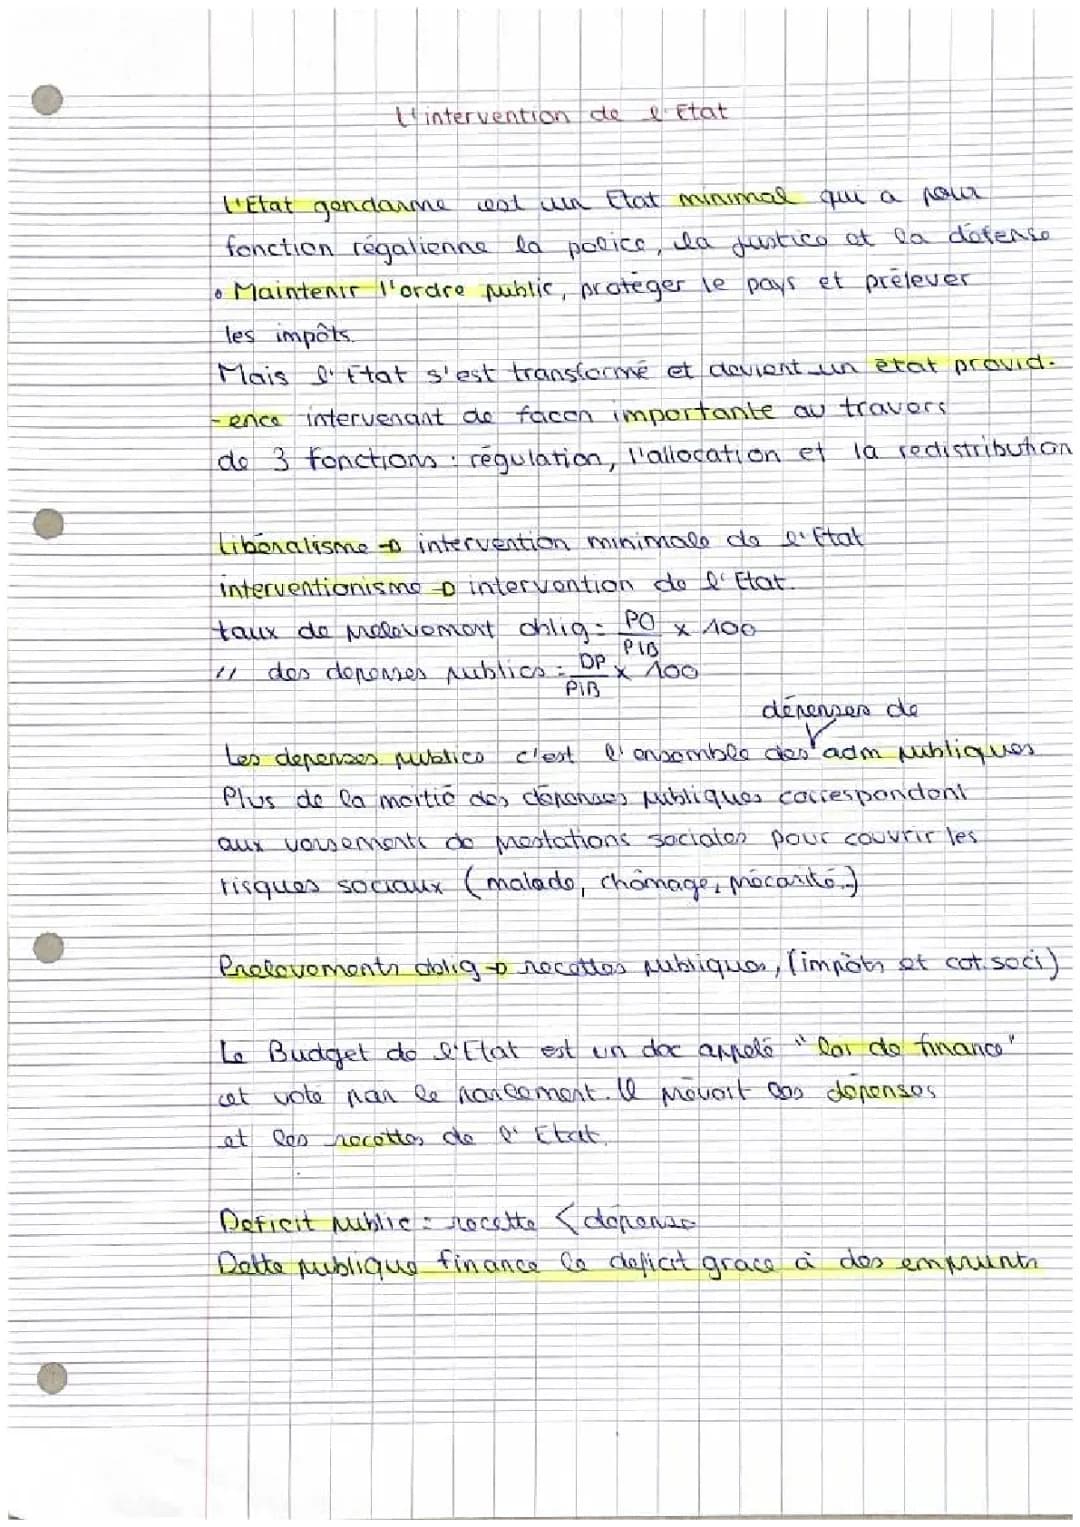 L'intervention de l'Etat
L'Etat gendarme est un Etat minimal qui a pour
fonction régalienne la police, la justice et la défense
• Maintenir l'ordre public, protéger le pays et prélever
les impôts.
Mais l'Etat s'est transformé et devient un état provid-
-ence intervenant de facon importante au travers
de 3 fonctions : régulation, l'allocation et la redistribution
Libéralisme → intervention minimale de l'Etat
interventionisme → intervention de l'Etat.
taux de prelevement oblig = PO/PIB × 100
" des depenses publics = DP/PIB × 100
dépenses de
Les depenses publics c'est l'ensemble des adm publiques
Plus de la moitié des dépenses publiques correspondent
aux versements de prestations sociales pour couvrir les
risques sociaux (malade, chômage, précarité..)
Prelevements oblig → recettes publiques, (impôts et cot.soci)
Le Budget de l'Etat est un doc appelé "loi de finance"
et voté par le parlement. Il prévoit les dépenses
et les recettes de l'Etat.
Deficit public = recette < dépense
Dette publique finance le deficit grace à des emprunts